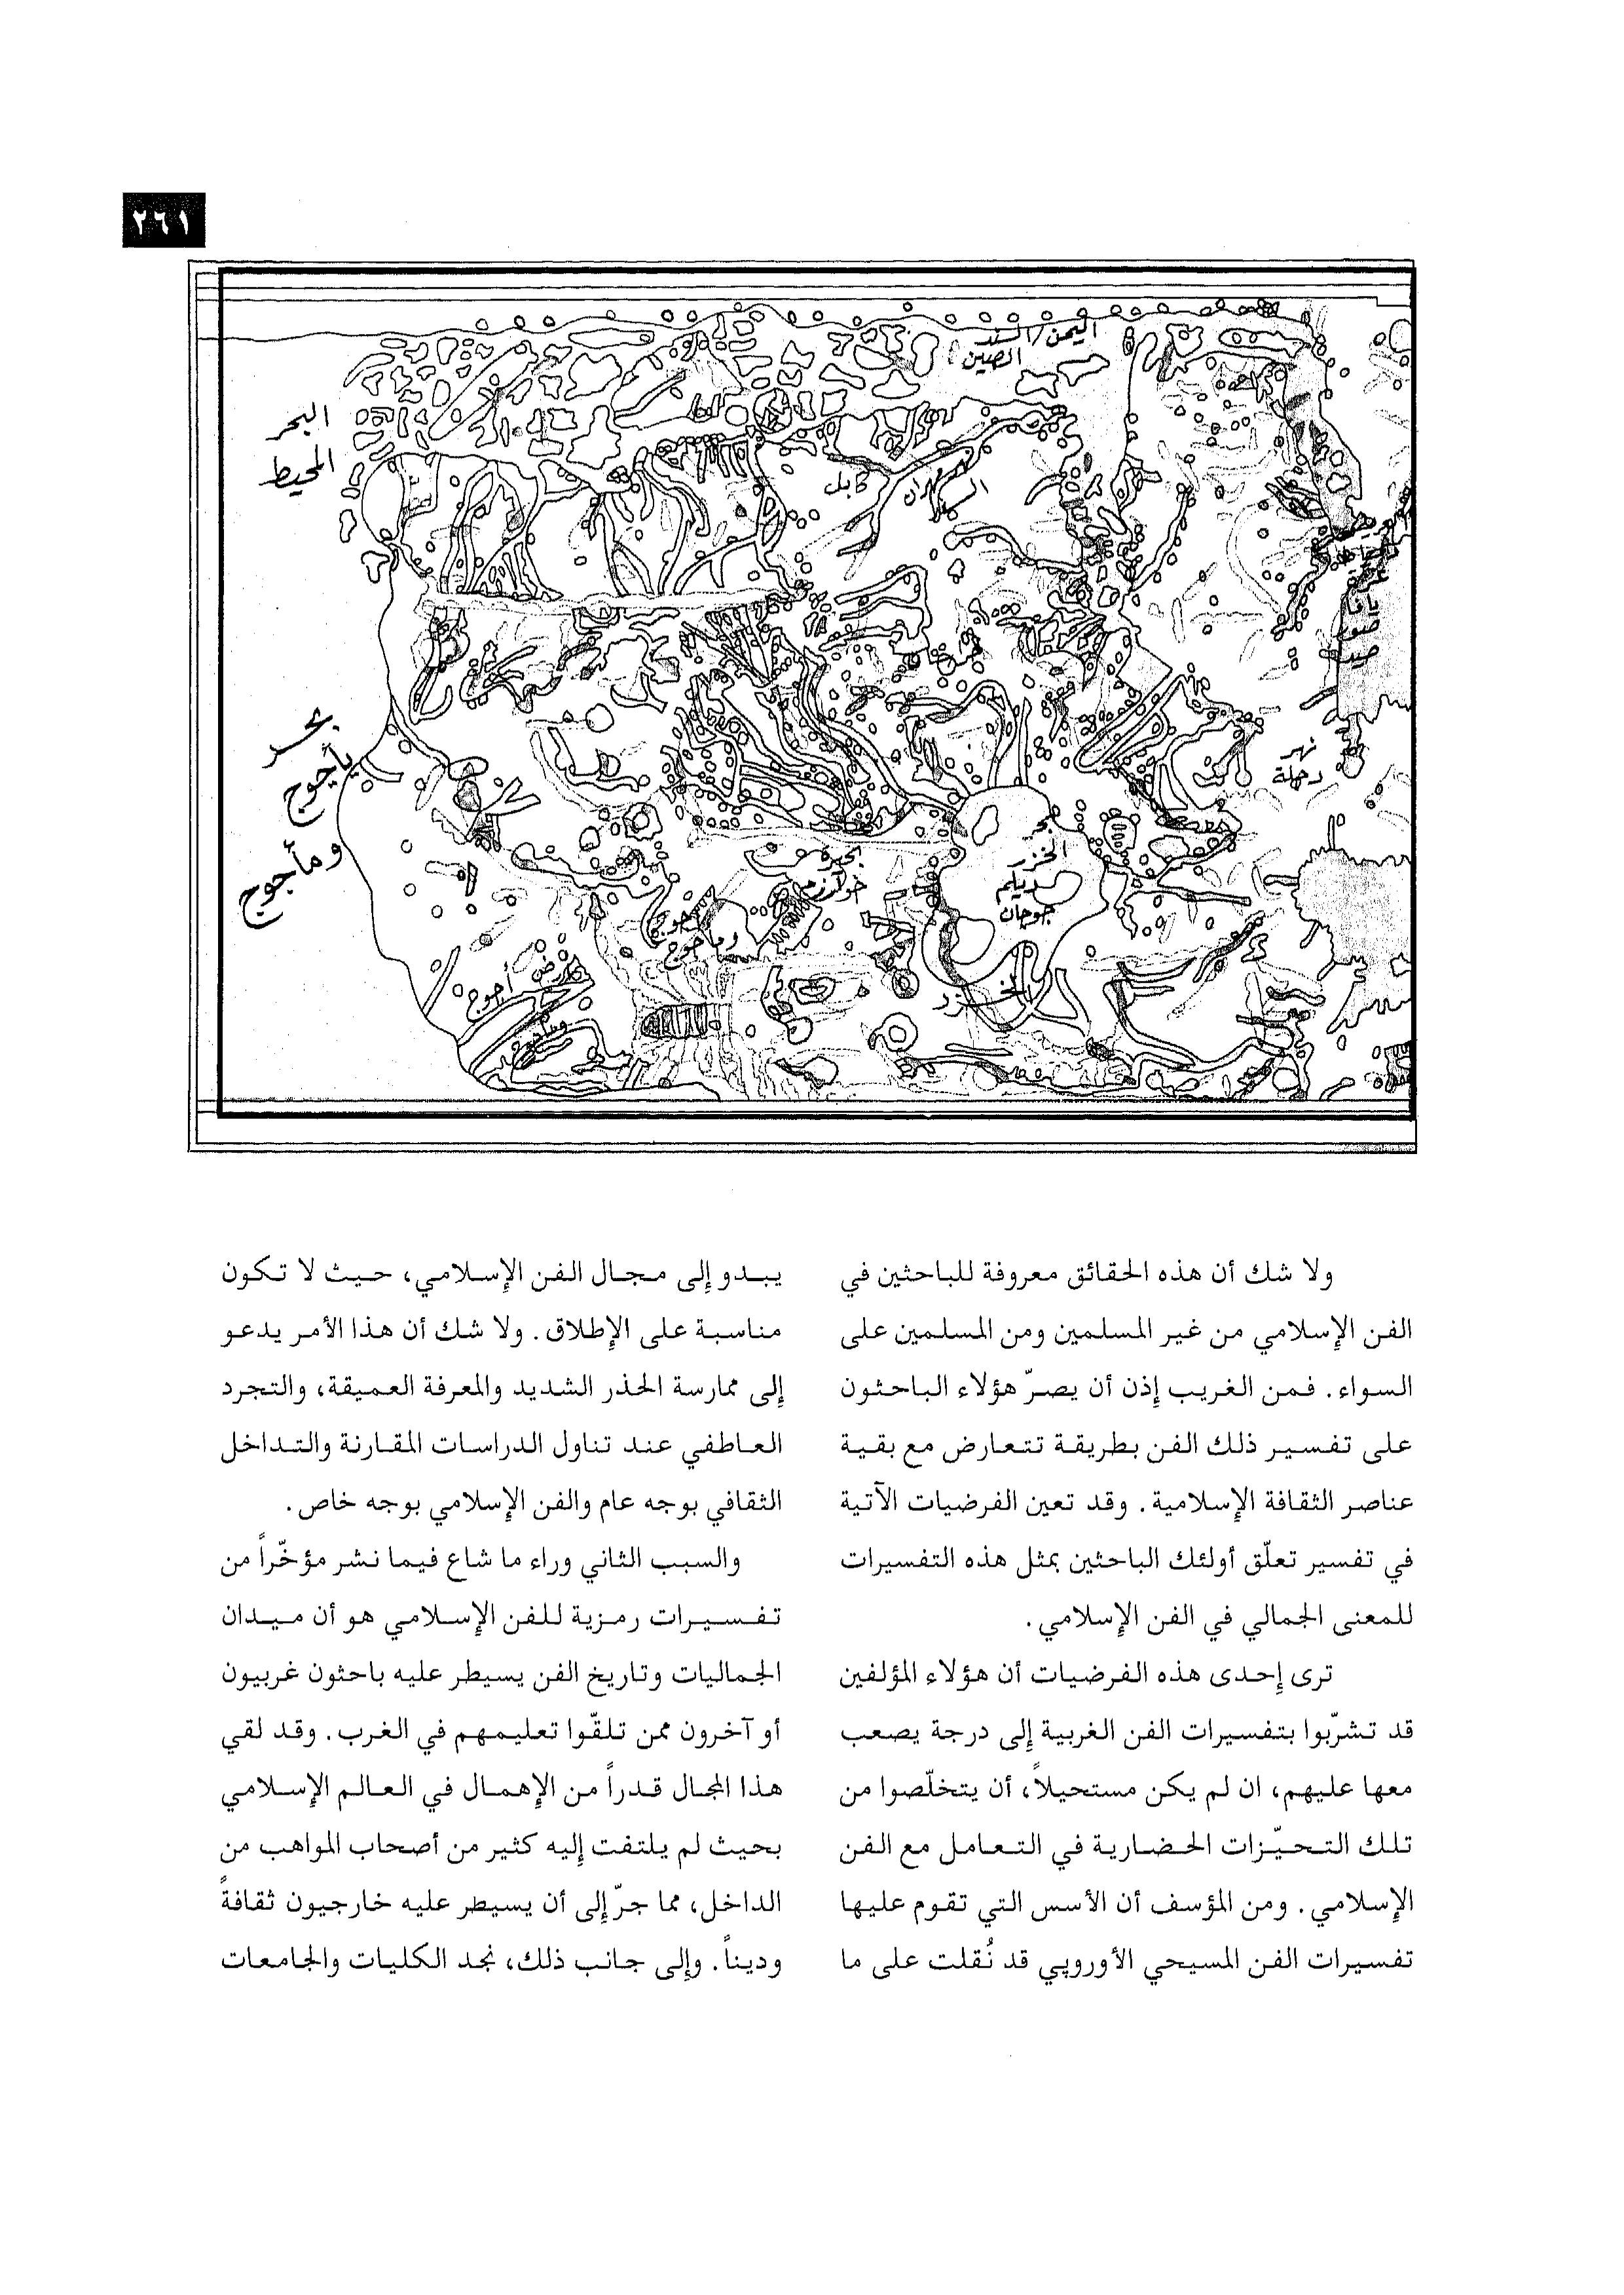 ٢٦١
اليمن / السند
الصين
البحر
المحيط
كابل
السند
مهران
يافا
صور
بحر
يأجوج
ومأجوج
نهر
دجلة
بحيرة
خوارزم
بحر
الخزر
ديلم
جرجان
ومأجوج
الخزر
ولا شك أن هذه الحقائق معروفة للباحثين في
الفن الإسلامي من غير المسلمين ومن المسلمين على
السواء. فمن الغريب إذن أن يصرّ هؤلاء الباحثون
على تفسير ذلك الفن بطريقة تتعارض مع بقية
عناصر الثقافة الإسلامية. وقد تعين الفرضيات الآتية
في تفسير تعلّق أولئك الباحثين بمثل هذه التفسيرات
للمعنى الجمالي في الفن الإسلامي.
ترى إحدى هذه الفرضيات أن هؤلاء المؤلفين
قد تشرّبوا بتفسيرات الفن الغربية إلى درجة يصعب
معها عليهم، ان لم يكن مستحيلاً، أن يتخلّصوا من
تلك التحيّزات الحضارية في التعامل مع الفن
الإسلامي. ومن المؤسف أن الأسس التي تقوم عليها
تفسيرات الفن المسيحي الأوروپي قد نُقلت على ما
يبدو إلى مجال الفن الإسلامي، حيث لا تكون
مناسبة على الإطلاق. ولا شك أن هذا الأمر يدعو
إلى ممارسة الحذر الشديد والمعرفة العميقة، والتجرد
العاطفي عند تناول الدراسات المقارنة والتداخل
الثقافي بوجه عام والفن الإسلامي بوجه خاص.
والسبب الثاني وراء ما شاع فيما نشر مؤخّراً من
تفسيرات رمزية للفن الإسلامي هو أن ميدان
الجماليات وتاريخ الفن يسيطر عليه باحثون غربيون
أو آخرون ممن تلقّوا تعليمهم في الغرب. وقد لقي
هذا المجال قدراً من الإهمال في العالم الإسلامي
بحيث لم يلتفت إليه كثير من أصحاب المواهب من
الداخل، مما جرّ إلى أن يسيطر عليه خارجيون ثقافةً
وديناً. وإلى جانب ذلك، نجد الكليات والجامعات